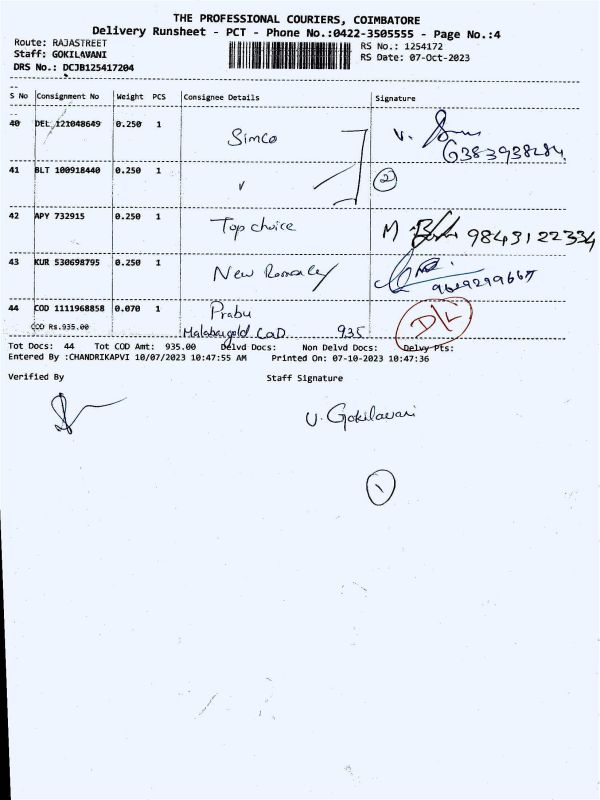 THE PROFESSIONAL COURIERS, COIMBATORE
Delivery Runsheet - PCT - Phone No.:0422-3505555 - Page No.:4
Route: RAJASTREET
Staff: GOKILAVANI
DRS No.: DCJB125417204
RS No.: 1254172
RS Date: 07-Oct-2023
S No Consignment No Weight PCS Consignee Details Signature
40 DEL 121048649 0.250 1 Simco V.
6383938284
41 BLT 100918440 0.250 1 2
42 APY 732915 0.250 1 Top choice M 9843122334
43 KUR 530698795 0.250 1 New
44 COD 1111968858 0.070 1 Prabu D/L
COD Rs.935.00 Malabargold COD 935
Tot Docs: 44 Tot COD Amt: 935.00 Delvd Docs: Non Delvd Docs: Delvy Pts:
Entered By :CHANDRIKAPVI 10/07/2023 10:47:55 AM Printed On: 07-10-2023 10:47:36
Verified By Staff Signature
V. Gokilavani
1